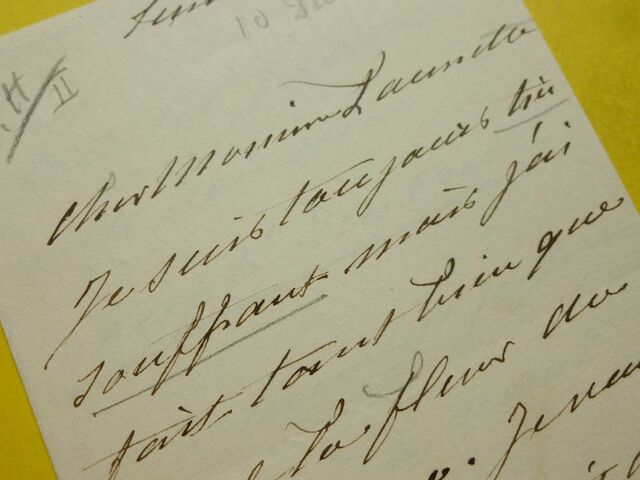 10
II
Cher Monsieur Launette
Je suis toujours très
souffrant mais j'ai
fait tant bien que
la fleur du